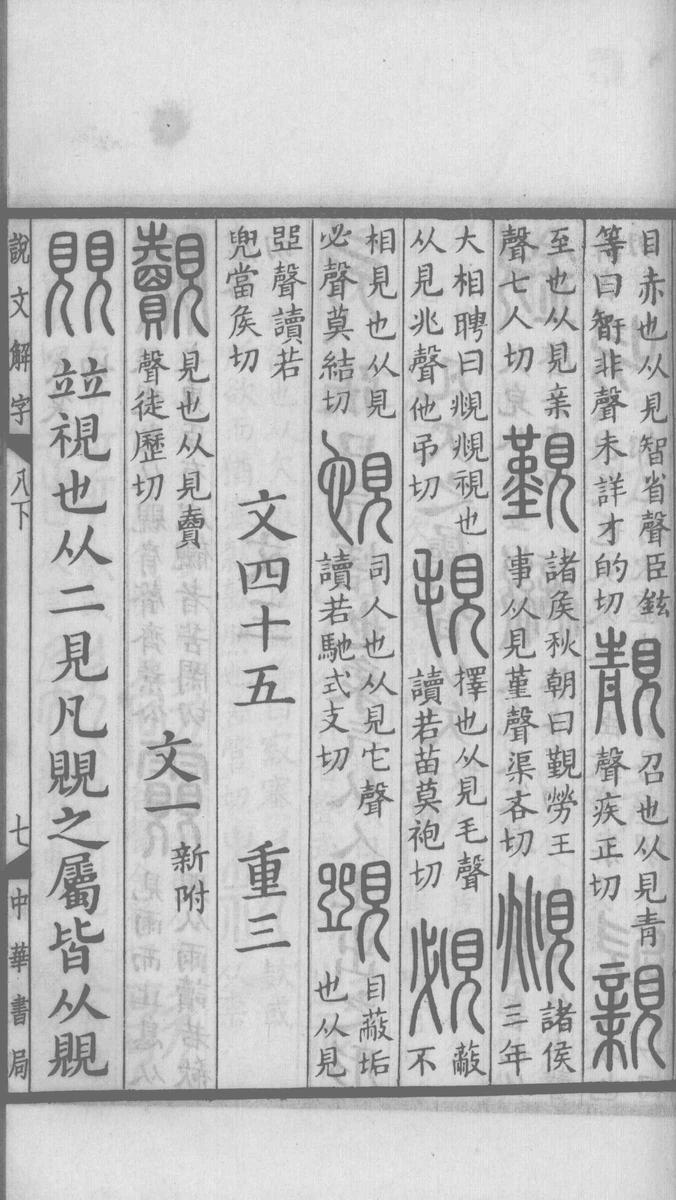 目赤也从見智省聲臣鉉
等曰𥏼非聲未詳才的切
靚
召也从見青
聲疾正切
親
至也从見亲
聲七人切
覲
諸矦秋朝曰覲勞王
事从見堇聲渠吝切
覜
諸侯
三年
大相聘曰覜覜視也
从見兆聲他弔切
覒
擇也从見毛聲
讀若苗莫袍切
覕
蔽
不
相見也从見
必聲莫結切
䙷
司人也从見它聲
讀若馳式支切
目蔽垢
也从見
聲讀若
兜當矦切
文四十五 重三
覿
見也从見𧶠
聲徒歷切
文一 新附
覞 竝視也从二見凡覞之屬皆从覞
說文解字 八下 七 中華書局